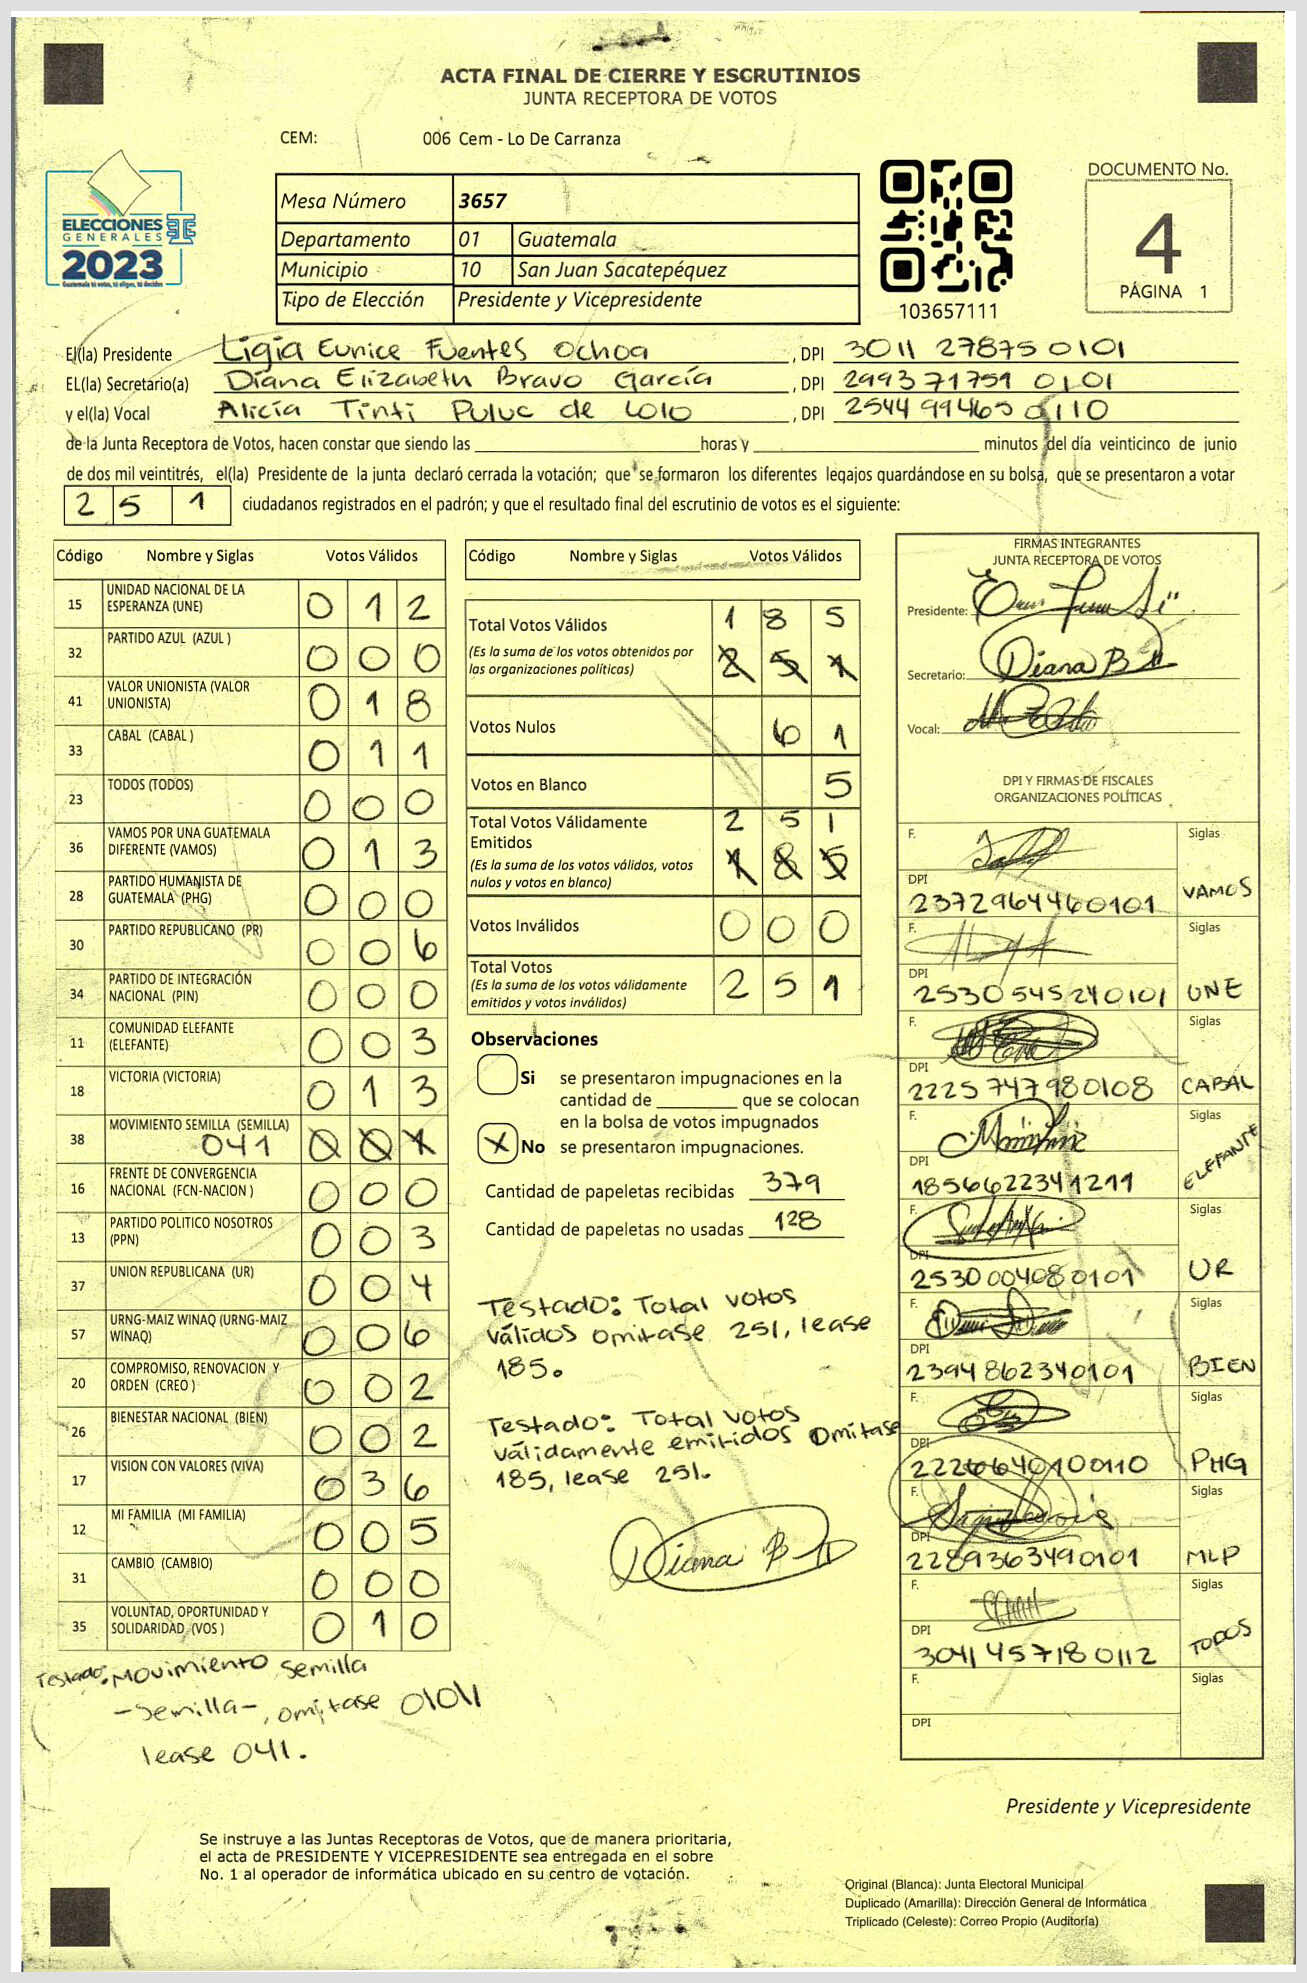 ACTA FINAL DE CIERRE Y ESCRUTINIOS
JUNTA RECEPTORA DE VOTOS
CEM: 006 Cem - Lo De Carranza
ELECCIONES
GENERALES
2023
Guatemala tú votas, tú eliges, tú decides
Mesa Número 3657
Departamento 01 Guatemala
Municipio 10 San Juan Sacatepéquez
Tipo de Elección Presidente y Vicepresidente
103657111
DOCUMENTO No.
4
PÁGINA 1
El(la) Presidente Ligia Eunice Fuentes Ochoa, DPI 3011 27875 0101
EL(la) Secretario(a) Diana Elizabeth Bravo García, DPI 2993 71751 0101
y el(la) Vocal Alicia Tinti Puluc de Lolo, DPI 2544 99465 0110
de la Junta Receptora de Votos, hacen constar que siendo las horas y minutos del día veinticinco de junio
de dos mil veintitrés, el(la) Presidente de la junta declaró cerrada la votación; que se formaron los diferentes legajos guardándose en su bolsa, que se presentaron a votar
2 5 1 ciudadanos registrados en el padrón; y que el resultado final del escrutinio de votos es el siguiente:
Código Nombre y Siglas Votos Válidos
15 UNIDAD NACIONAL DE LA ESPERANZA (UNE) 0 1 2
32 PARTIDO AZUL (AZUL ) 0 0 0
41 VALOR UNIONISTA (VALOR UNIONISTA) 0 1 8
33 CABAL (CABAL ) 0 1 1
23 TODOS (TODOS) 0 0 0
36 VAMOS POR UNA GUATEMALA DIFERENTE (VAMOS) 0 1 3
28 PARTIDO HUMANISTA DE GUATEMALA (PHG) 0 0 0
30 PARTIDO REPUBLICANO (PR) 0 0 6
34 PARTIDO DE INTEGRACIÓN NACIONAL (PIN) 0 0 0
11 COMUNIDAD ELEFANTE (ELEFANTE) 0 0 3
18 VICTORIA (VICTORIA) 0 1 3
38 MOVIMIENTO SEMILLA (SEMILLA) 041 0 0 1
16 FRENTE DE CONVERGENCIA NACIONAL (FCN-NACION ) 0 0 0
13 PARTIDO POLITICO NOSOTROS (PPN) 0 0 3
37 UNION REPUBLICANA (UR) 0 0 4
57 URNG-MAIZ WINAQ (URNG-MAIZ WINAQ) 0 0 6
20 COMPROMISO, RENOVACION Y ORDEN (CREO ) 0 0 2
26 BIENESTAR NACIONAL (BIEN) 0 0 2
17 VISION CON VALORES (VIVA) 0 3 6
12 MI FAMILIA (MI FAMILIA) 0 0 5
31 CAMBIO (CAMBIO) 0 0 0
35 VOLUNTAD, OPORTUNIDAD Y SOLIDARIDAD (VOS ) 0 1 0
Testado: Movimiento Semilla
-Semilla-, omitase 0\0\1
lease 041.
Código Nombre y Siglas Votos Válidos
Total Votos Válidos 1 8 5
(Es la suma de los votos obtenidos por las organizaciones políticas) 2 5 1
Votos Nulos 6 1
Votos en Blanco 5
Total Votos Válidamente Emitidos 2 5 1
(Es la suma de los votos válidos, votos nulos y votos en blanco) 1 8 5
Votos Inválidos 0 0 0
Total Votos 2 5 1
(Es la suma de los votos válidamente emitidos y votos inválidos)
Observaciones
Si se presentaron impugnaciones en la
cantidad de que se colocan
en la bolsa de votos impugnados
X No se presentaron impugnaciones.
Cantidad de papeletas recibidas 379
Cantidad de papeletas no usadas 128
Testado: Total votos
válidos omitase 251, lease
185.
Testado: Total votos
válidamente emitidos omitase
185, lease 251.
Diana B
FIRMAS INTEGRANTES
JUNTA RECEPTORA DE VOTOS
Presidente:
Secretario: Diana B
Vocal:
DPI Y FIRMAS DE FISCALES
ORGANIZACIONES POLÍTICAS
F. Siglas
DPI 2372964460101 VAMOS
F. Siglas
DPI 2530545240101 UNE
F. Siglas
DPI 2225747980108 CABAL
F. Siglas
DPI 1856622341211 ELEFANTE
F. Siglas
DPI 2530004080101 UR
F. Siglas
DPI 2394862340101 BIEN
F. Siglas
DPI 2226640100110 PHG
F. Siglas
DPI 2289363490101 MLP
F. Siglas
DPI 3041457180112 TODOS
F. Siglas
DPI
Presidente y Vicepresidente
Se instruye a las Juntas Receptoras de Votos, que de manera prioritaria,
el acta de PRESIDENTE Y VICEPRESIDENTE sea entregada en el sobre
No. 1 al operador de informática ubicado en su centro de votación.
Original (Blanca): Junta Electoral Municipal
Duplicado (Amarilla): Dirección General de Informática
Triplicado (Celeste): Correo Propio (Auditoría)